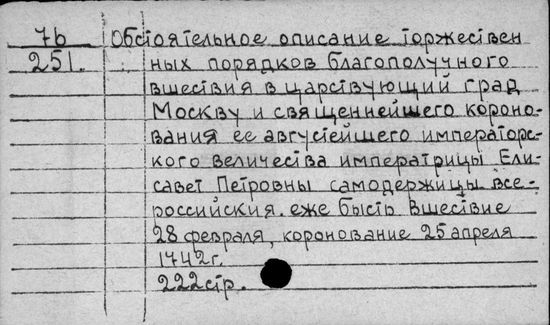 7б Обстоятельное описание торжествен
251. ных порядков благополучного
вшествия в царствующий град
Москву и священнейшего короно-
вания ее августейшего императорс-
кого величества императрицы Ели-
савет Петровны самодержицы все-
российския. еже бысть вшествие
28 февраля, коронование 25 апреля
1742г.
222стр.